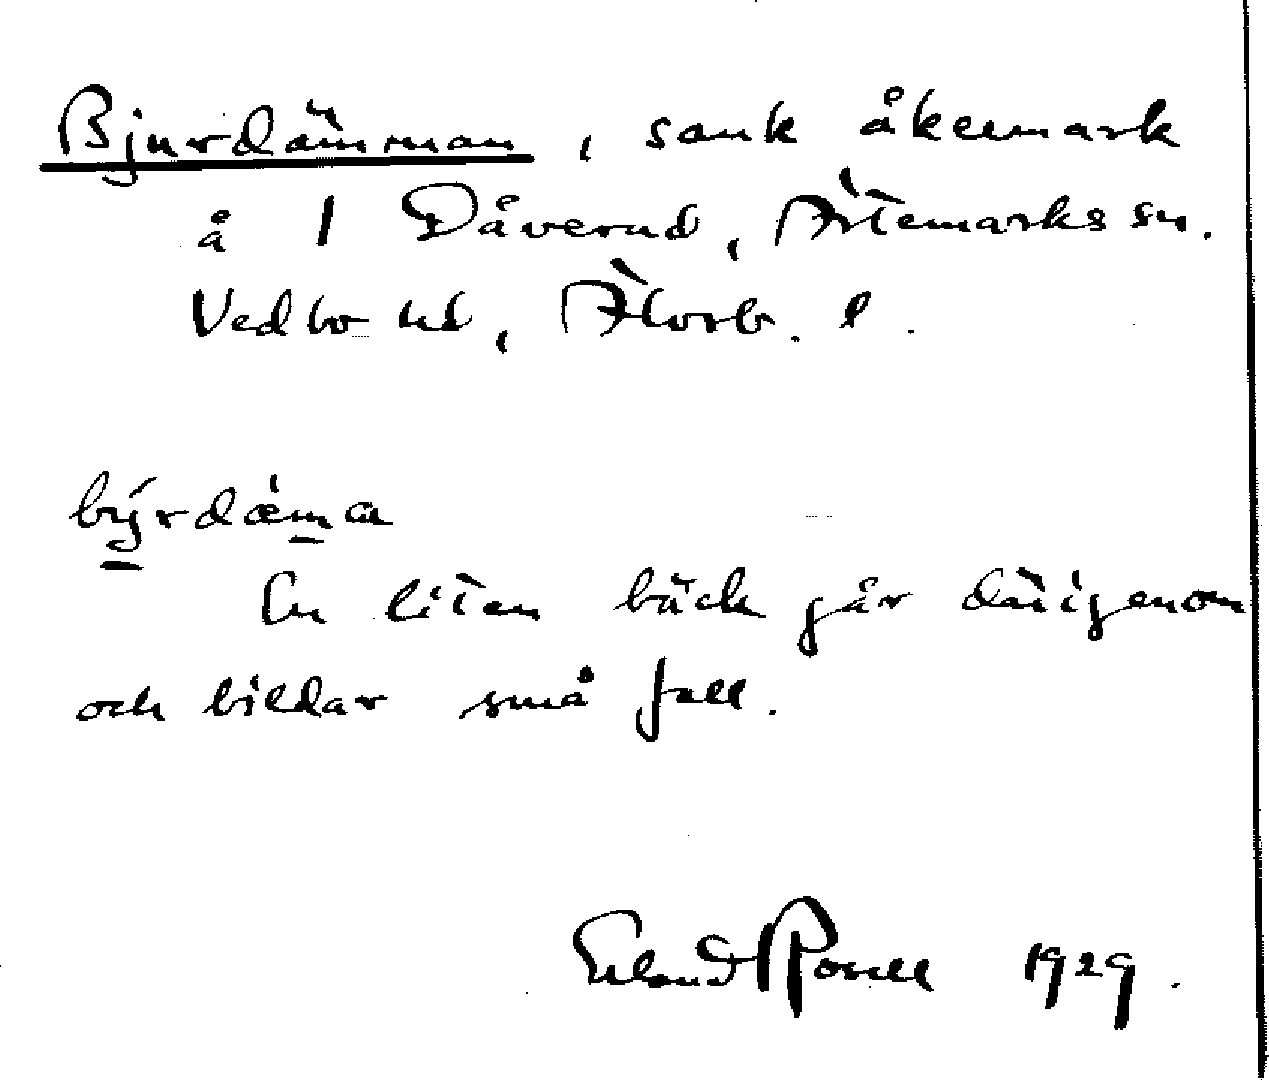 Bjurdämman, sank åkermark
å 1 Dåverud, Ärtemarks sn.
Vedbo hd, Älvsb. l.
bÿrdæ̀ma
En liten bäck går därigenom
och bildar små fall.
Erland Rosell 1929.